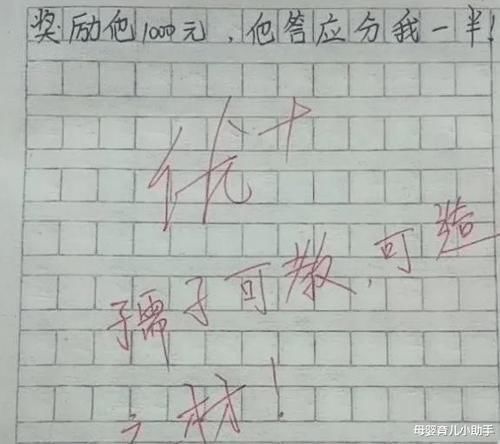 奖励他1000元，他答应分我一半！
优+
孺子可教，可造
之材！
母婴育儿小助手